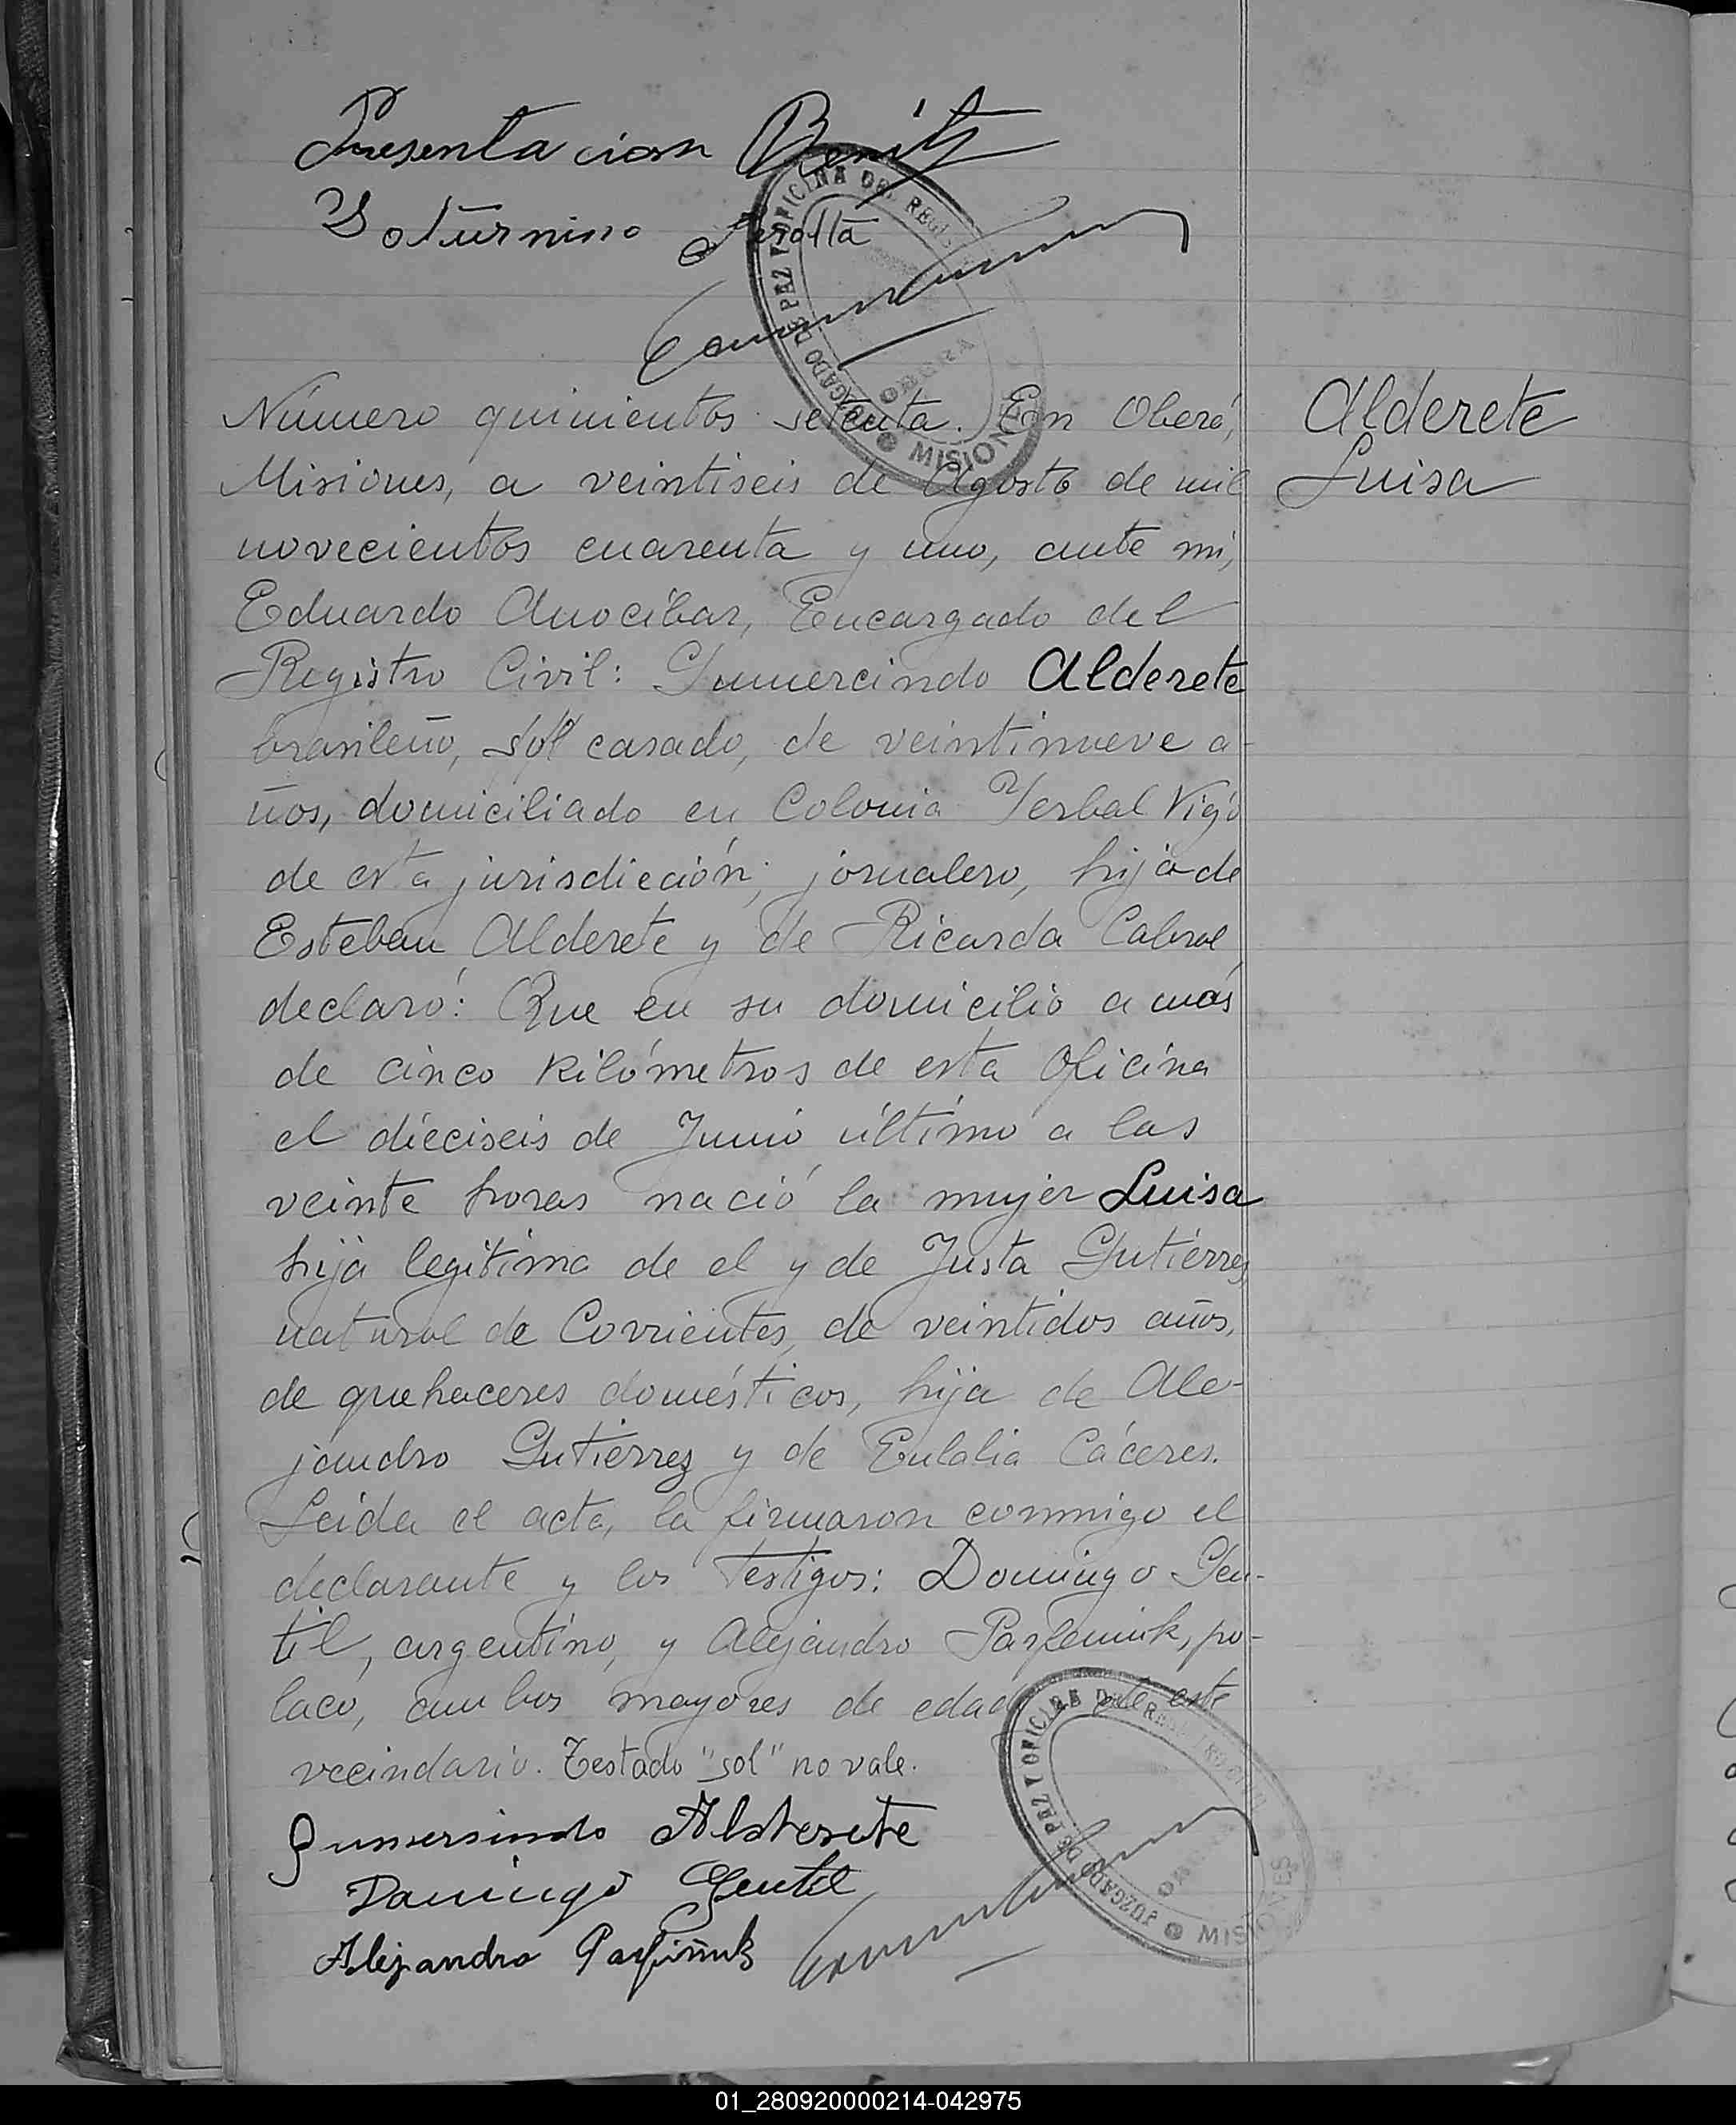 Presentacion Benitz
Soturnino Peralta
JUZGADO DE PAZ Y OFICINA DEL REGIS
MISIONES
Número quinientos setenta. En Oberá,
Misiones, a veintiseis de Agosto de mil
novecientos cuarenta y uno, ante mi,
Eduardo Anocíbar, Encargado del
Registro Civil: Gumercindo Alderete
brasileño, sol casado, de veintinueve a-
ños, domiciliado en Colonia Yerbal Vigo
de esta jurisdicción; jornalero, hijo de
Esteban Alderete y de Ricarda Cabral
declaró: Que en su domicilio a más
de cinco kilómetros de esta Oficina
el dieciseis de Junio último a las
veinte horas nació la mujer Luisa
hija legítima de el y de Justa Gutiérrez
natural de Corrientes, de veintidos años,
de quehaceres domésticos, hija de Ale-
jandro Gutierrez y de Eulalia Cáceres.
Leída el acta, la firmaron conmigo el
declarante y los testigos: Domingo Gen-
til, argentino, y Alejandro Parfeniuk, po-
laco, ambos mayores de edad de este
vecindario. Testado "sol" no vale.
Gumersindo Alderete
Domingo Gentil
Alejandro Parfiñuk
JUZGADO DE PAZ Y OFICINA DE
MISIONES
Alderete
Luisa
01_280920000214-042975